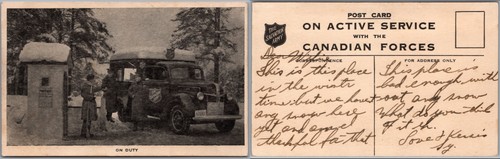 ON DUTY
POST CARD
ON ACTIVE SERVICE
WITH THE
CANADIAN FORCES
SALVATION
ARMY
CORRESPONDENCE
FOR ADDRESS ONLY
Dear
This is this place
in the winter
time but we havent
any snow here
yet and am
thankful for that
This place is
bad enough with
out any snow
What do you think
of it
Love &